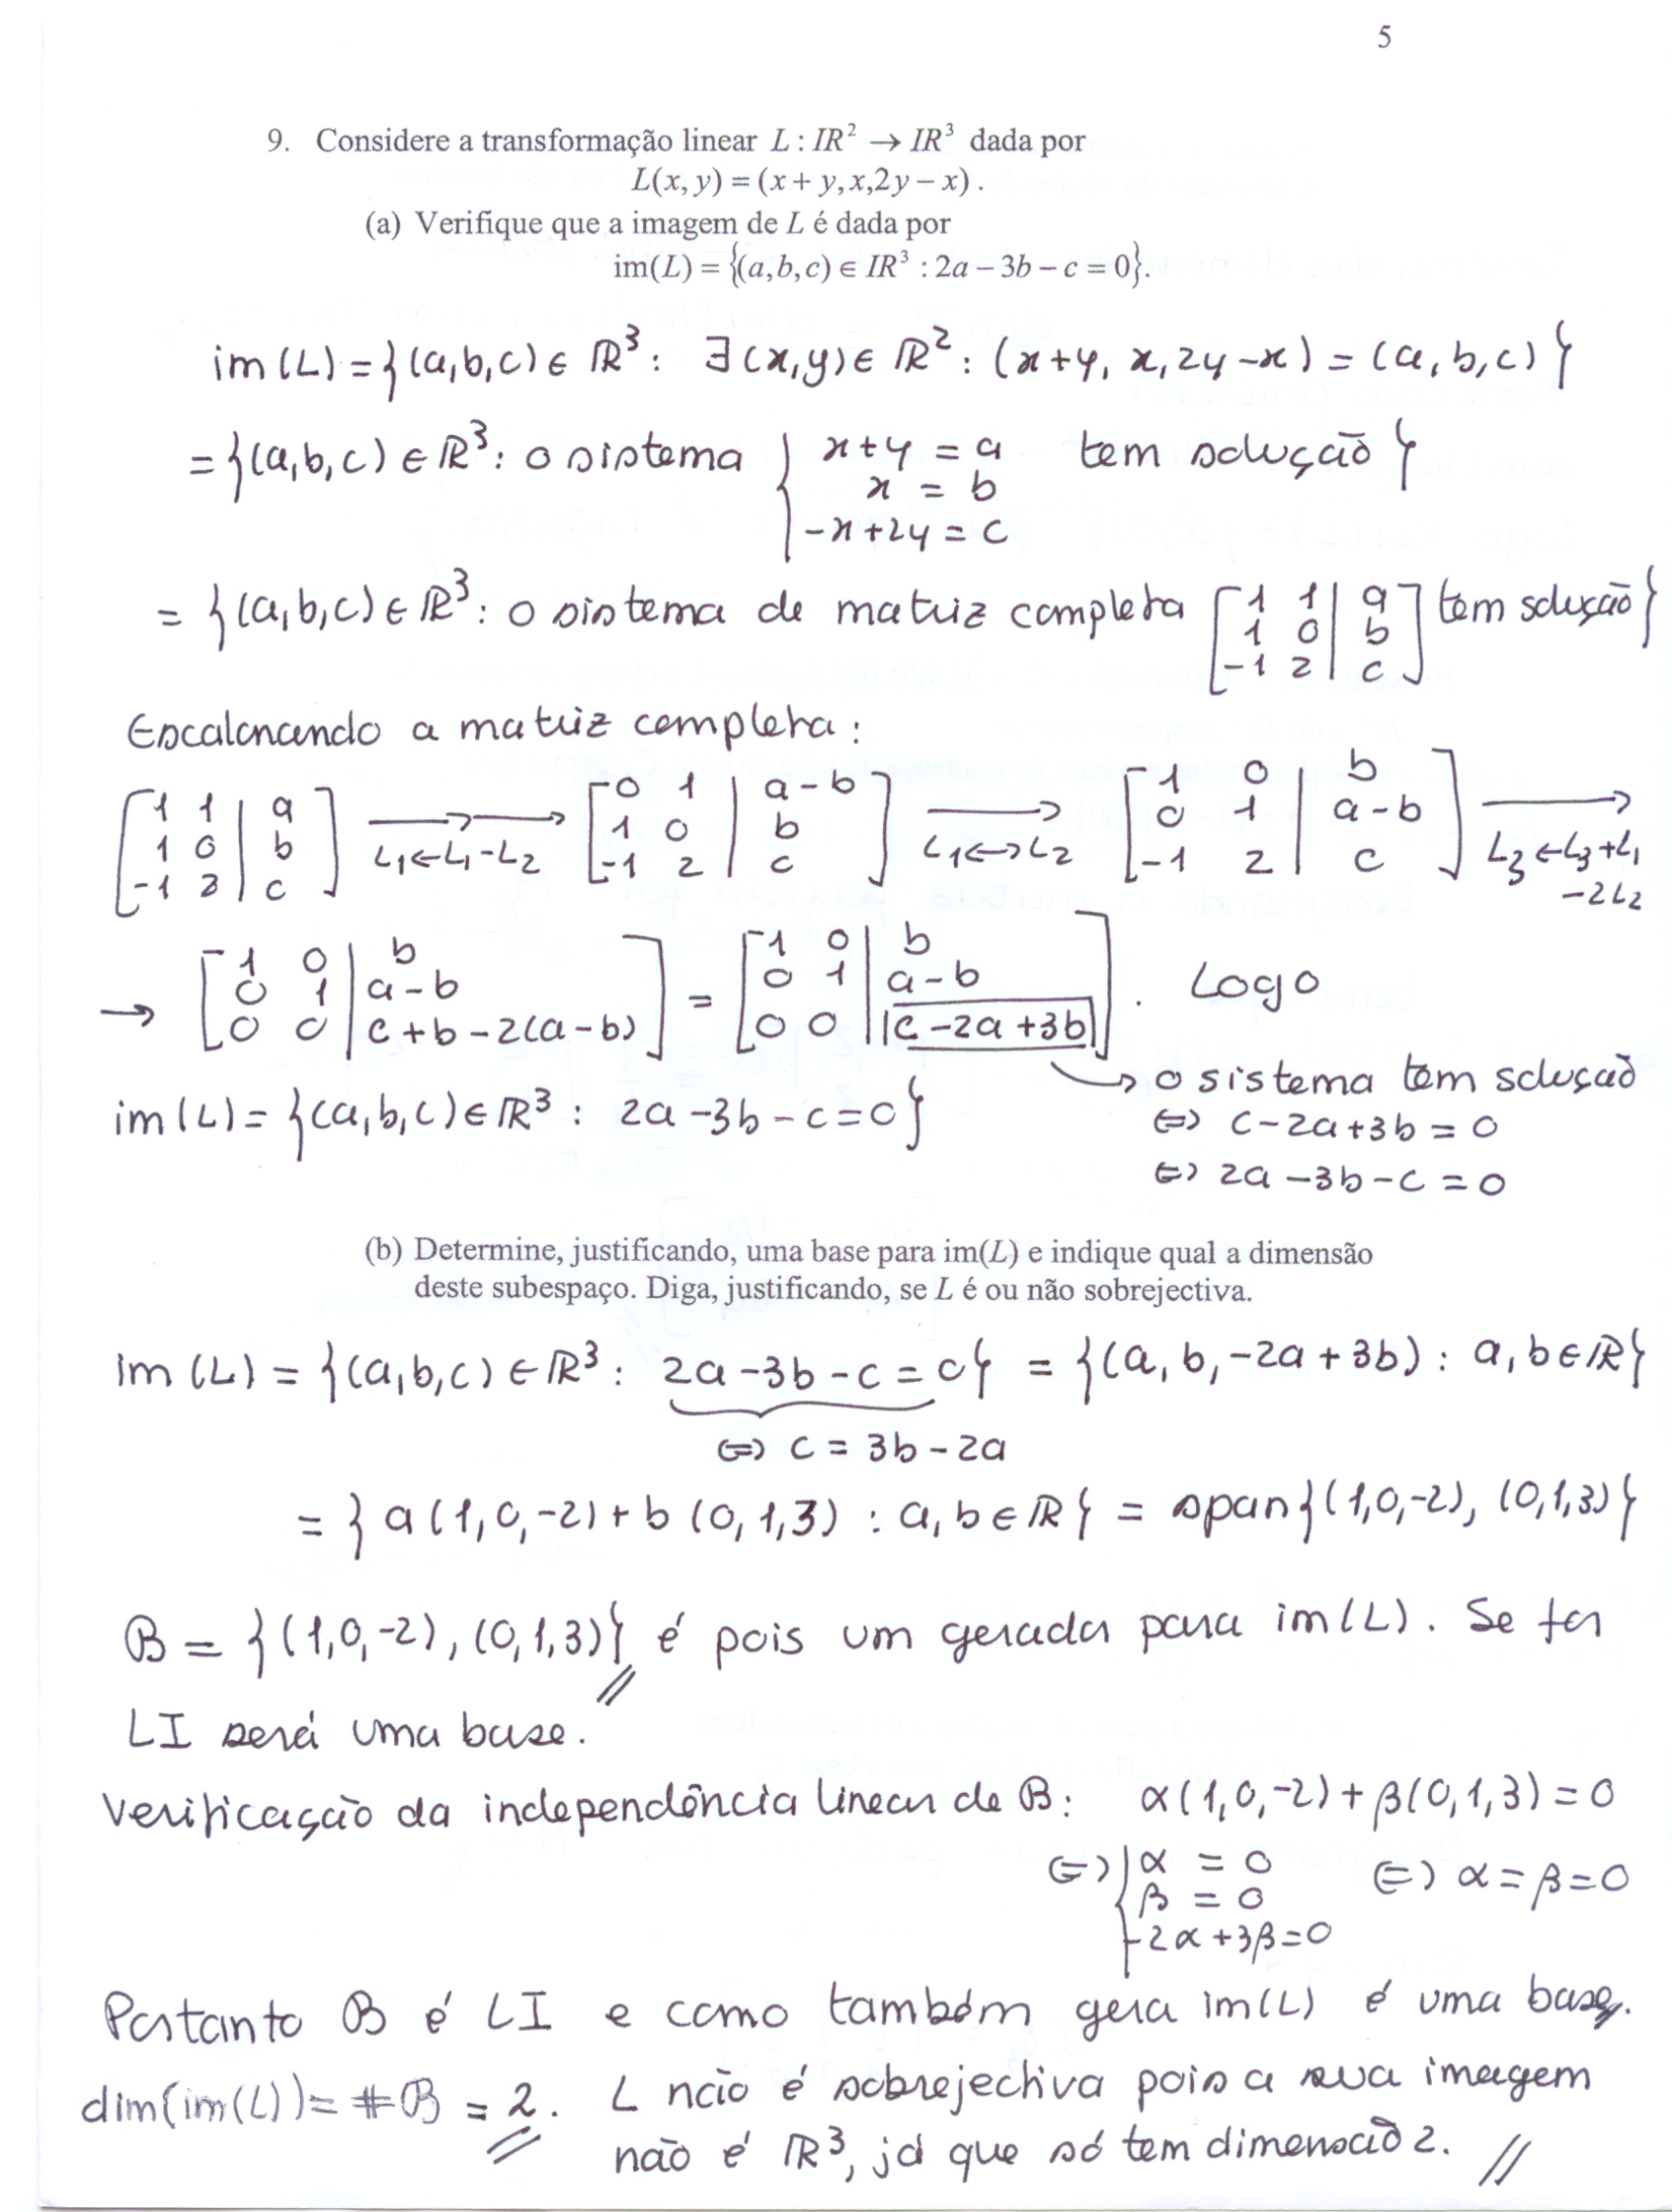 5
9. Considere a transformação linear L : IR² → IR³ dada por
L(x, y) = (x + y, x,2y − x) .
(a) Verifique que a imagem de L é dada por
im(L) = {(a,b,c) ∈ IR³ : 2a − 3b − c = 0}.
im(L) = {(a,b,c) ∈ ℝ³: ∃(x,y) ∈ ℝ²: (x+y, x, 2y−x) = (a, b, c)}
= {(a,b,c) ∈ ℝ³: o sistema { x+y = a tem solução }
x = b
−x+2y = c
= {(a,b,c) ∈ ℝ³: o sistema de matriz completa [ 1 1 | a ] tem solução}
1 0 | b
−1 2 | c
Escalonando a matriz completa:
[ 1 1 | a ] →→ [ 0 1 | a−b ] → [ 1 0 | b ] →
1 0 | b L₁←L₁−L₂ 1 0 | b L₁↔L₂ 0 1 | a−b L₃←L₃+L₁
−1 2 | c −1 2 | c −1 2 | c −2L₂
→ [ 1 0 | b ] = [ 1 0 | b ] . Logo
0 1 | a−b 0 1 | a−b
0 0 | c+b−2(a−b) 0 0 | c−2a+3b
→ o sistema tem solução
im(L) = {(a,b,c) ∈ ℝ³ : 2a−3b−c=0}
⇔ c−2a+3b = 0
⇔ 2a−3b−c = 0
(b) Determine, justificando, uma base para im(L) e indique qual a dimensão
deste subespaço. Diga, justificando, se L é ou não sobrejectiva.
im(L) = {(a,b,c) ∈ ℝ³: 2a−3b−c = 0} = {(a, b, −2a+3b) : a,b ∈ ℝ}
⇔ c = 3b−2a
= {a(1,0,−2)+b(0,1,3) : a,b ∈ ℝ} = span{(1,0,−2), (0,1,3)}
B = {(1,0,−2), (0,1,3)} é pois um gerador para im(L). Se for
LI será uma base.
Verificação da independência linear de B: α(1,0,−2)+β(0,1,3) = 0
⇔ { α = 0 ⇔ α=β=0
β = 0
−2α+3β=0
Portanto B é LI e como também gera im(L) é uma base.
dim(im(L)) = #B = 2. L não é sobrejectiva pois a sua imagem
não é ℝ³, já que só tem dimensão 2.